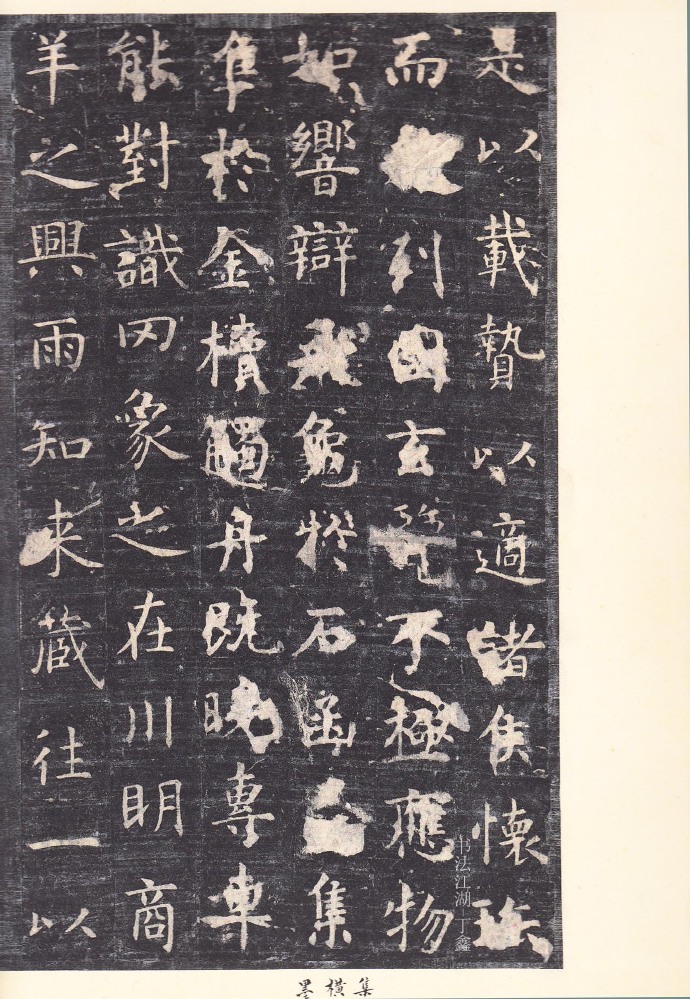 是以載贄以適諸侯懷珎
而列國玄不極應物
如響辯飛龜於石函集
隼於金櫝觸舟既曉專車
能對識罔象之在川明商
羊之興雨知來藏往一以
书法江湖 丁鑫
集橫墨